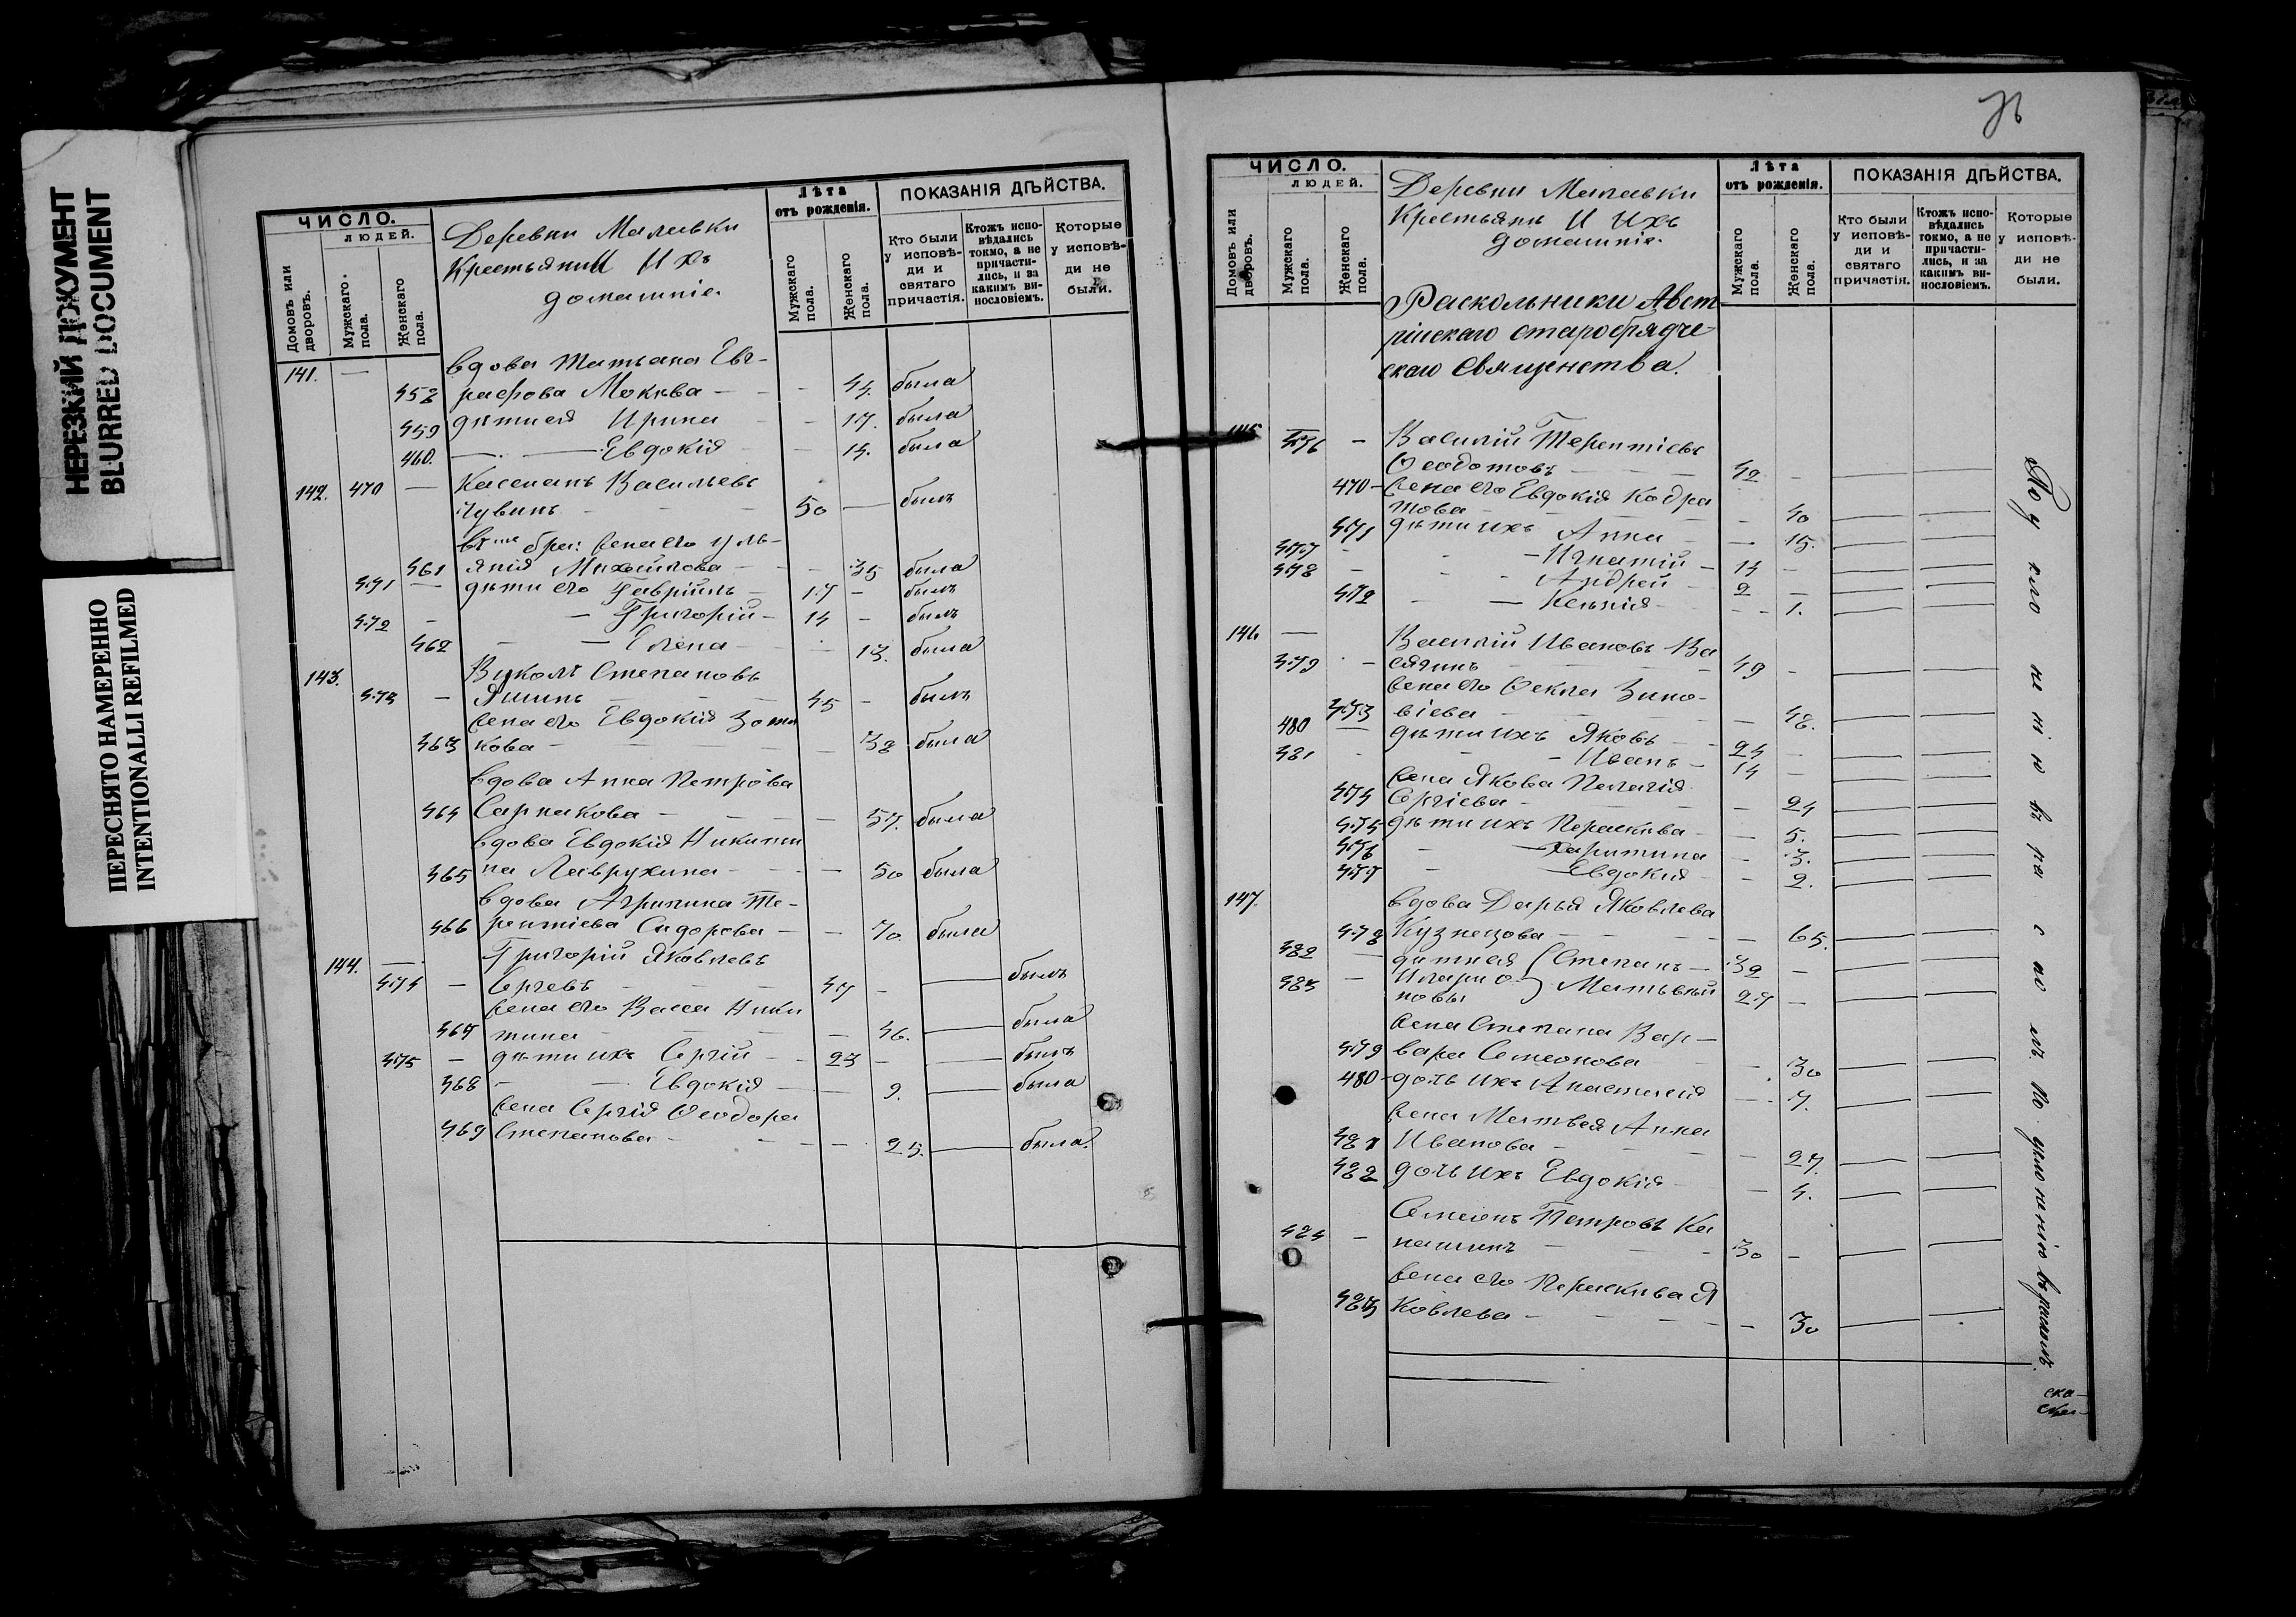 НЕРЕЗКИЙ ДОКУМЕНТ
BLURRED DOCUMENT
ПЕРЕСНЯТО НАМЕРЕННО
INTENTIONALLI REFILMED
ЧИСЛО.
ЛЮДЕЙ.
Домовъ или дворовъ.
Мужскаго пола.
Женскаго пола.
Деревни Малевки
Крестьянии Ихъ
домашніе.
Лѣта
отъ рожденія.
Мужскаго пола.
Женскаго пола.
ПОКАЗАНІЯ ДѢЙСТВА.
Кто были у исповѣди и святаго причастія.
Ктожъ исповѣдались токмо, а не причастились, и за какимъ винословіемъ.
Которые у исповѣди не были.
141. — вдова Татьана Ев-
458 графова Мокѣва — 44. была
459 дѣти ея Ирина — 17. была
460. — Евдокія — 14. была
142. 470 — Касеианъ Васильевъ
Чувинъ — 50 — былъ
жена его Уль-
461 янія Михайлова — 35 была
471 — дѣти его Гавріилъ — 17 — былъ
472 — Григорій — 14 — былъ
462 — Елена — 13. была
143. Вуколъ Степановъ
473 — Яшинъ — 45 — былъ
жена его Евдокія Зоти
463 кова — 38 была
вдова Анна Петрова
464 Сарпакова — 57. была
вдова Евдокія Никити
465 на Лаврухина — 50 была
вдова Агрипина Те-
466 рентіева Сидорова — 70. была
144. — Григорій Яковлевъ
474 — Сергевъ — 47 — — былъ
жена его Васса Ники
467 тина — 46. — была
475 — дѣти ихъ Сергій — 23 — — былъ
468 — Евдокія — 9. — была
жена Сергія Ѳеодора
469 Степанова — 25. — была.
ЧИСЛО.
ЛЮДЕЙ.
Домовъ или дворовъ.
Мужскаго пола.
Женскаго пола.
Деревни Малевки
Крестьянъ И Ихъ
домашніе.
Лѣта
отъ рожденія.
Мужскаго пола.
Женскаго пола.
ПОКАЗАНІЯ ДѢЙСТВА.
Кто были у исповѣди и святаго причастія.
Ктожъ исповѣдались токмо, а не причастились, и за какимъ винословіемъ.
Которые у исповѣди не были.
Раскольники Авст
рійскаго старобрядче
скаго Священства.
145 476 — Василій Терентіевъ
Ѳеодотовъ — 42 —
470 — жена его Евдокія Кодра
това — 40
471 дѣти ихъ Анна — 15.
477 — Игнатій — 14 —
478 — Андрей — 9 —
472 — Ксенія — 1.
146 — Василій Ивановъ Ва
479 — сягинъ — 49 —
жена его Ѳекла Зино-
473 віева — 48.
480 — дѣти ихъ Яковъ — 24 —
481 — Иванъ — 14 —
жена Якова Пелагія
474 Сергіева — 24
475 дѣти ихъ Параскева — 5.
476 — Харитина — 3.
477 — Евдокія — 2.
147. вдова Дарья Яковлева
478 Кузнецова — 65.
482 — дѣти ея Степанъ — 32 —
483 — Иларіо новы Матьвѣй 27 —
жена Степана Вар-
479 вара Семеонова — 30
480 — дочь ихъ Анастасія — 7.
жена Матвея Анна
481 Иванова — 27.
482 дочь ихъ Евдокія — 4.
Семеонъ Петровъ Ка
484 — нашинъ — 30 —
жена его Параскива Я
483 ковлева — 30
По уклоненію въ расколъ.